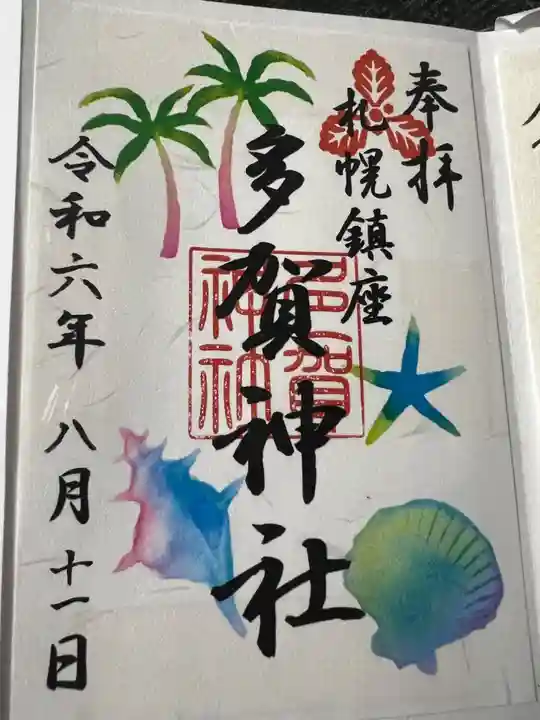 奉拝
札幌鎮座
多賀神社
多賀神社
令和六年 八月十一日